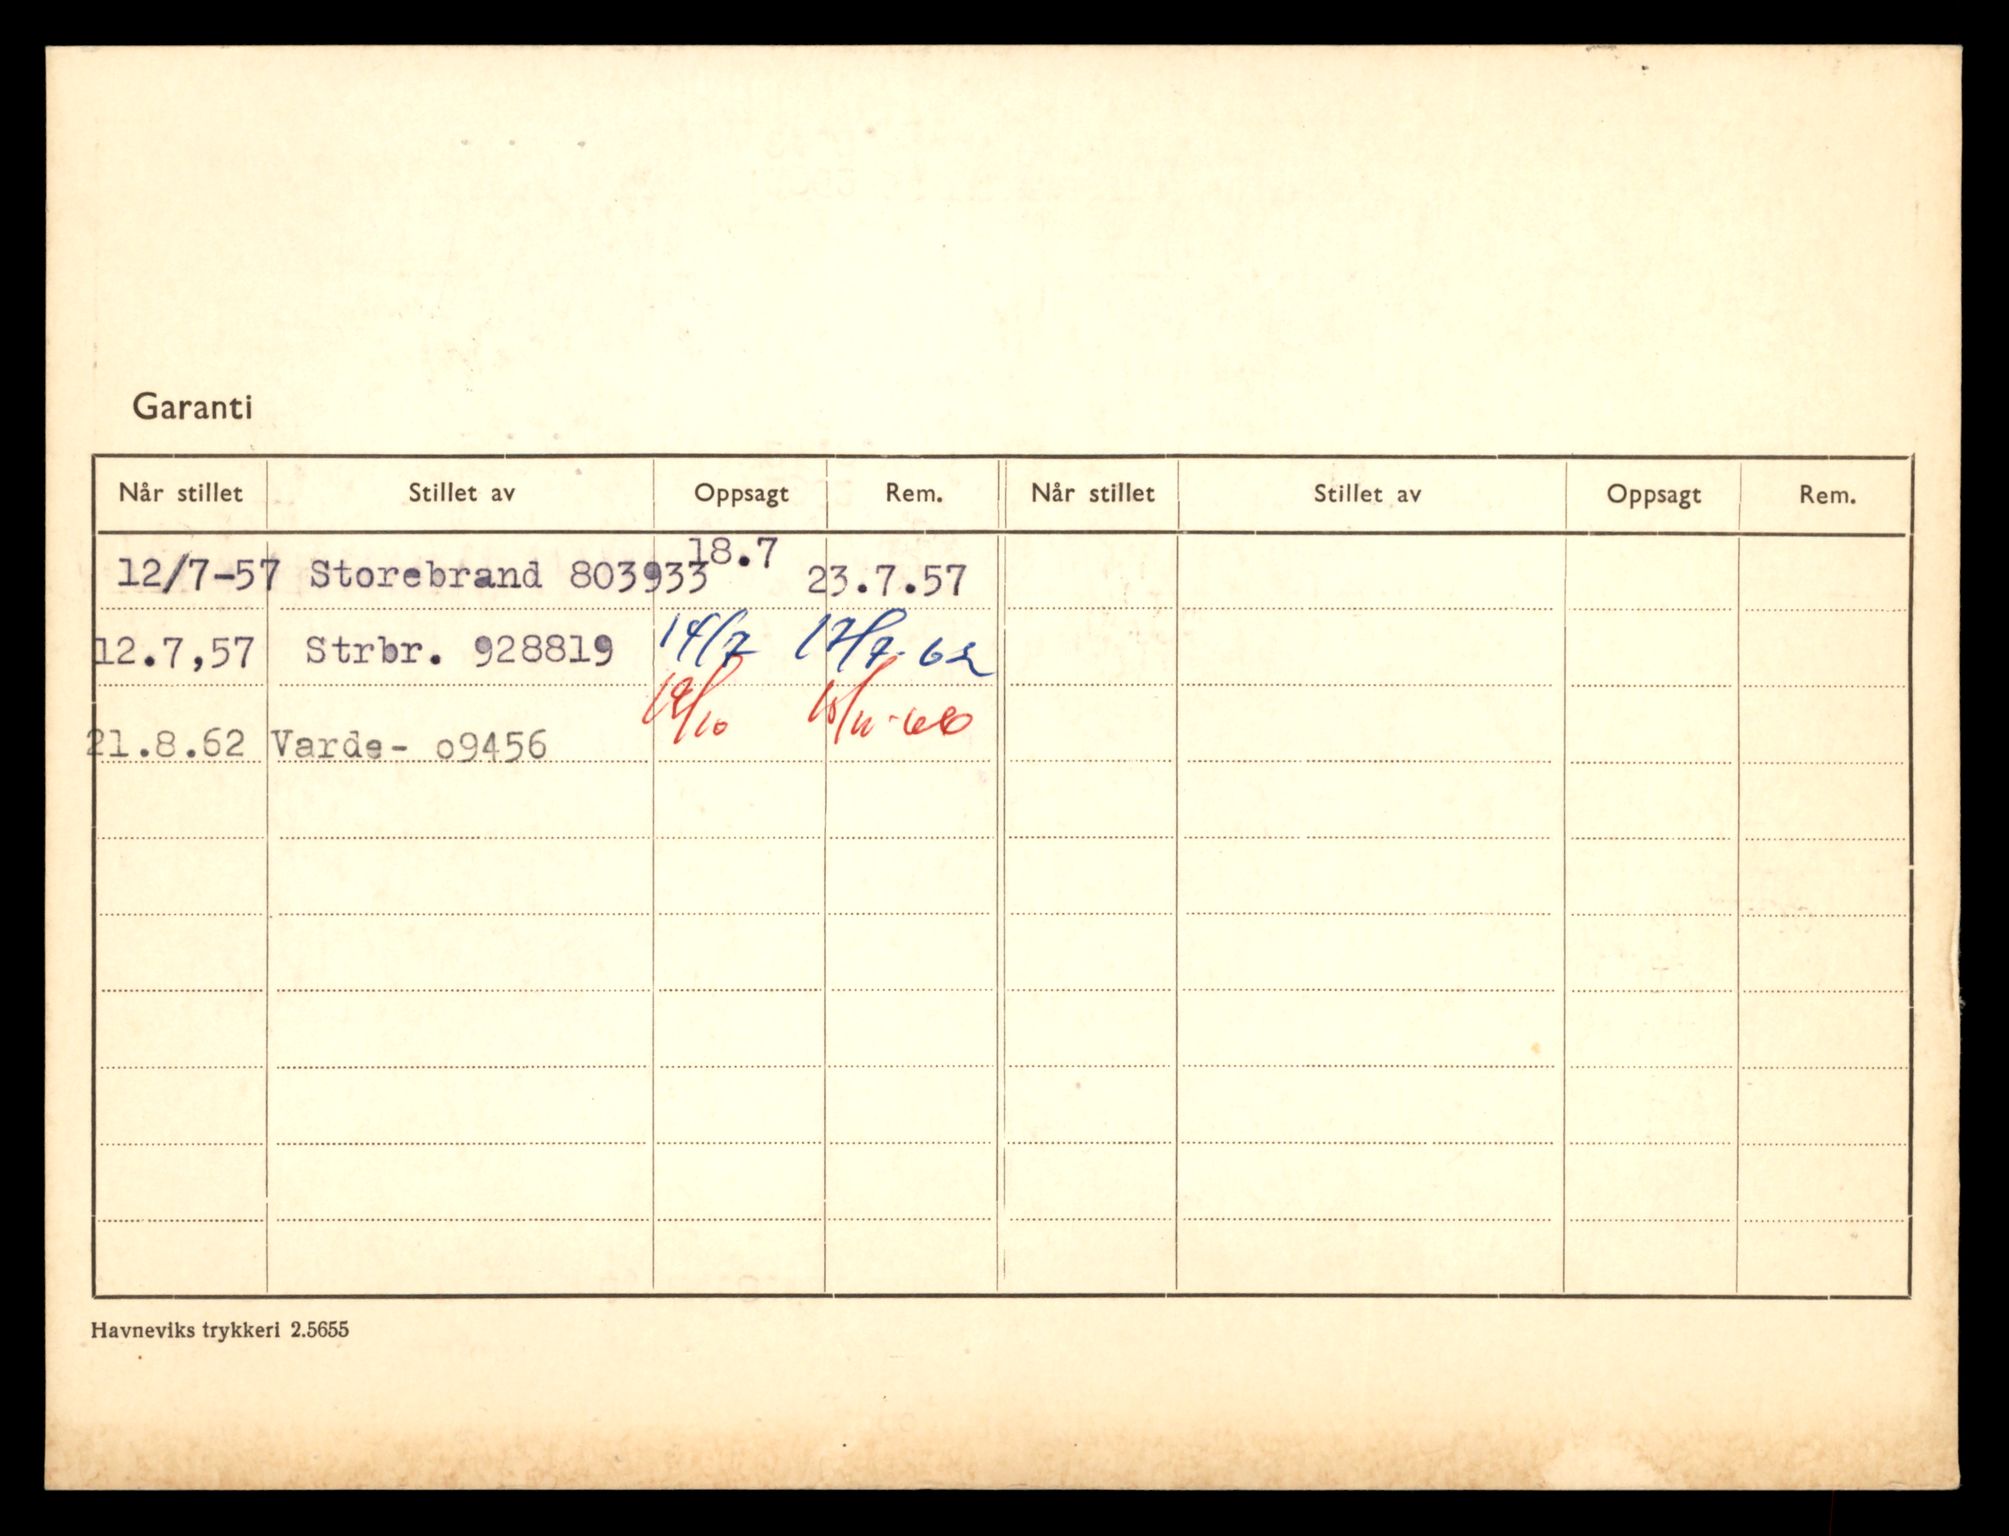 Garanti
Når stillet Stillet av Oppsagt Rem. Når stillet Stillet av Oppsagt Rem.
12/7-57 Storebrand 803933 18.7 23.7.57
12.7,57 Strbr. 928819 14/7 17/7-62
21.8.62 Varde- o9456
Havneviks trykkeri 2.5655